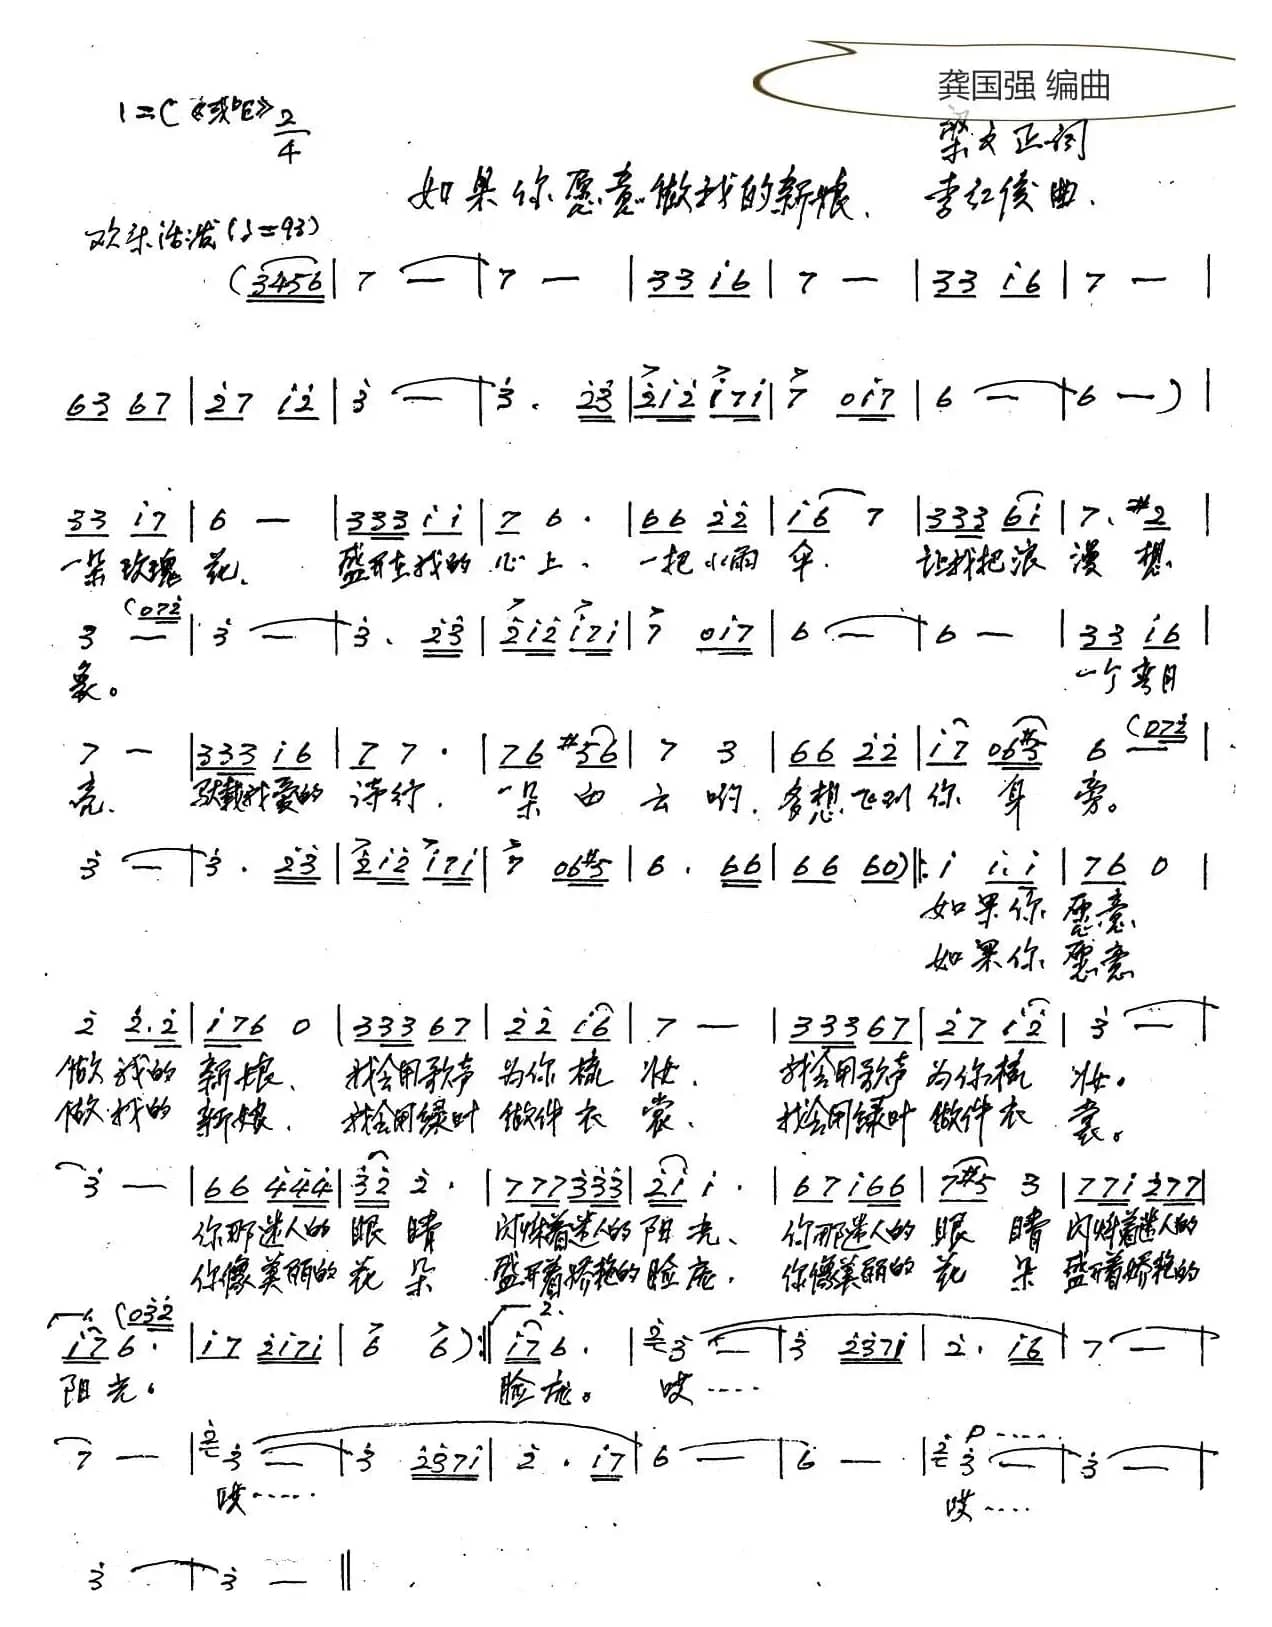 龚国强 编曲
1=C《或♭E》2/4
梁文正词
如果你愿意做我的新娘.
李红俊曲.
欢乐活泼(♩=93)
(3456|7 —|7 —|33 i6|7 —|33 i6|7 —|
63 67|27 i2|3 —|3. 23|2i2 i7i|7 0i7|6 —|6 —)|
33 i7|6 —|333 ii|7 6.|66 22|i6 7|333 6i|7. #2|
一朵玫瑰花. 盛开在我的心上. 一把小雨伞. 让我把浪漫想
3 — (072|3 —|3. 23|2i2 i7i|7 0i7|6 —|6 —|33 i6|
象。 一个弯月
7 —|333 i6|7 7.|76 #56|7 3|66 22|i7 06#5|6 — (072|
亮. 驮载我爱的诗行. 一朵白云哟. 多想飞到你身旁。
3 —|3. 23|2i2 i7i|7 06#5|6. 66|66 60)|:i i.i|76 0|
如果你愿意
如果你愿意
2 2.2|i76 0|333 67|22 i6|7 —|333 67|27 i2|3 —|
做我的新娘. 我会用歌声为你梳妆. 我会用歌声为你梳妆。
做我的新娘. 我会用绿叶做件衣裳. 我会用绿叶做件衣裳。
3 —|66 444|32 2.|777 333|2i i.|67 i66|7#5 3|77i 277|
你那迷人的眼睛 闪烁着迷人的阳光、你那迷人的眼睛闪烁着迷人的
你像美丽的花朵 盛开着娇艳的脸庞. 你像美丽的花朵盛开着娇艳的
1. i7 6. (032|i7 2i7i|6 6):|2. i7 6.|2 3 —|3 237i|2. i6|7 —|
阳光。 脸庞。 哎……
7 —|2 3 —|3 237i|2. i7|6 —|6 —|P…… 2 3 —|3 —|
哎…… 哎……
3 —|3 —‖